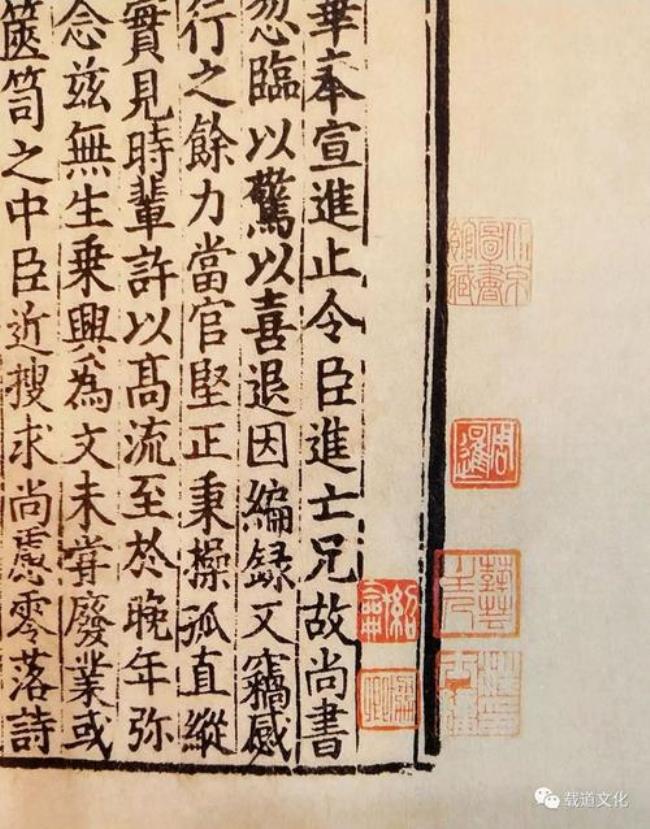 華奉宣進止令臣進亡兄故尚書
忽臨以驚以喜退因編録又竊感
行之餘力當官堅正秉操孤直縱
實見時輩許以髙流至於晚年弥
念兹無生乗興為文未甞廢業或
篋笥之中臣近搜求尚慮零落詩
北京
圖書
館藏
周暹
载道文化